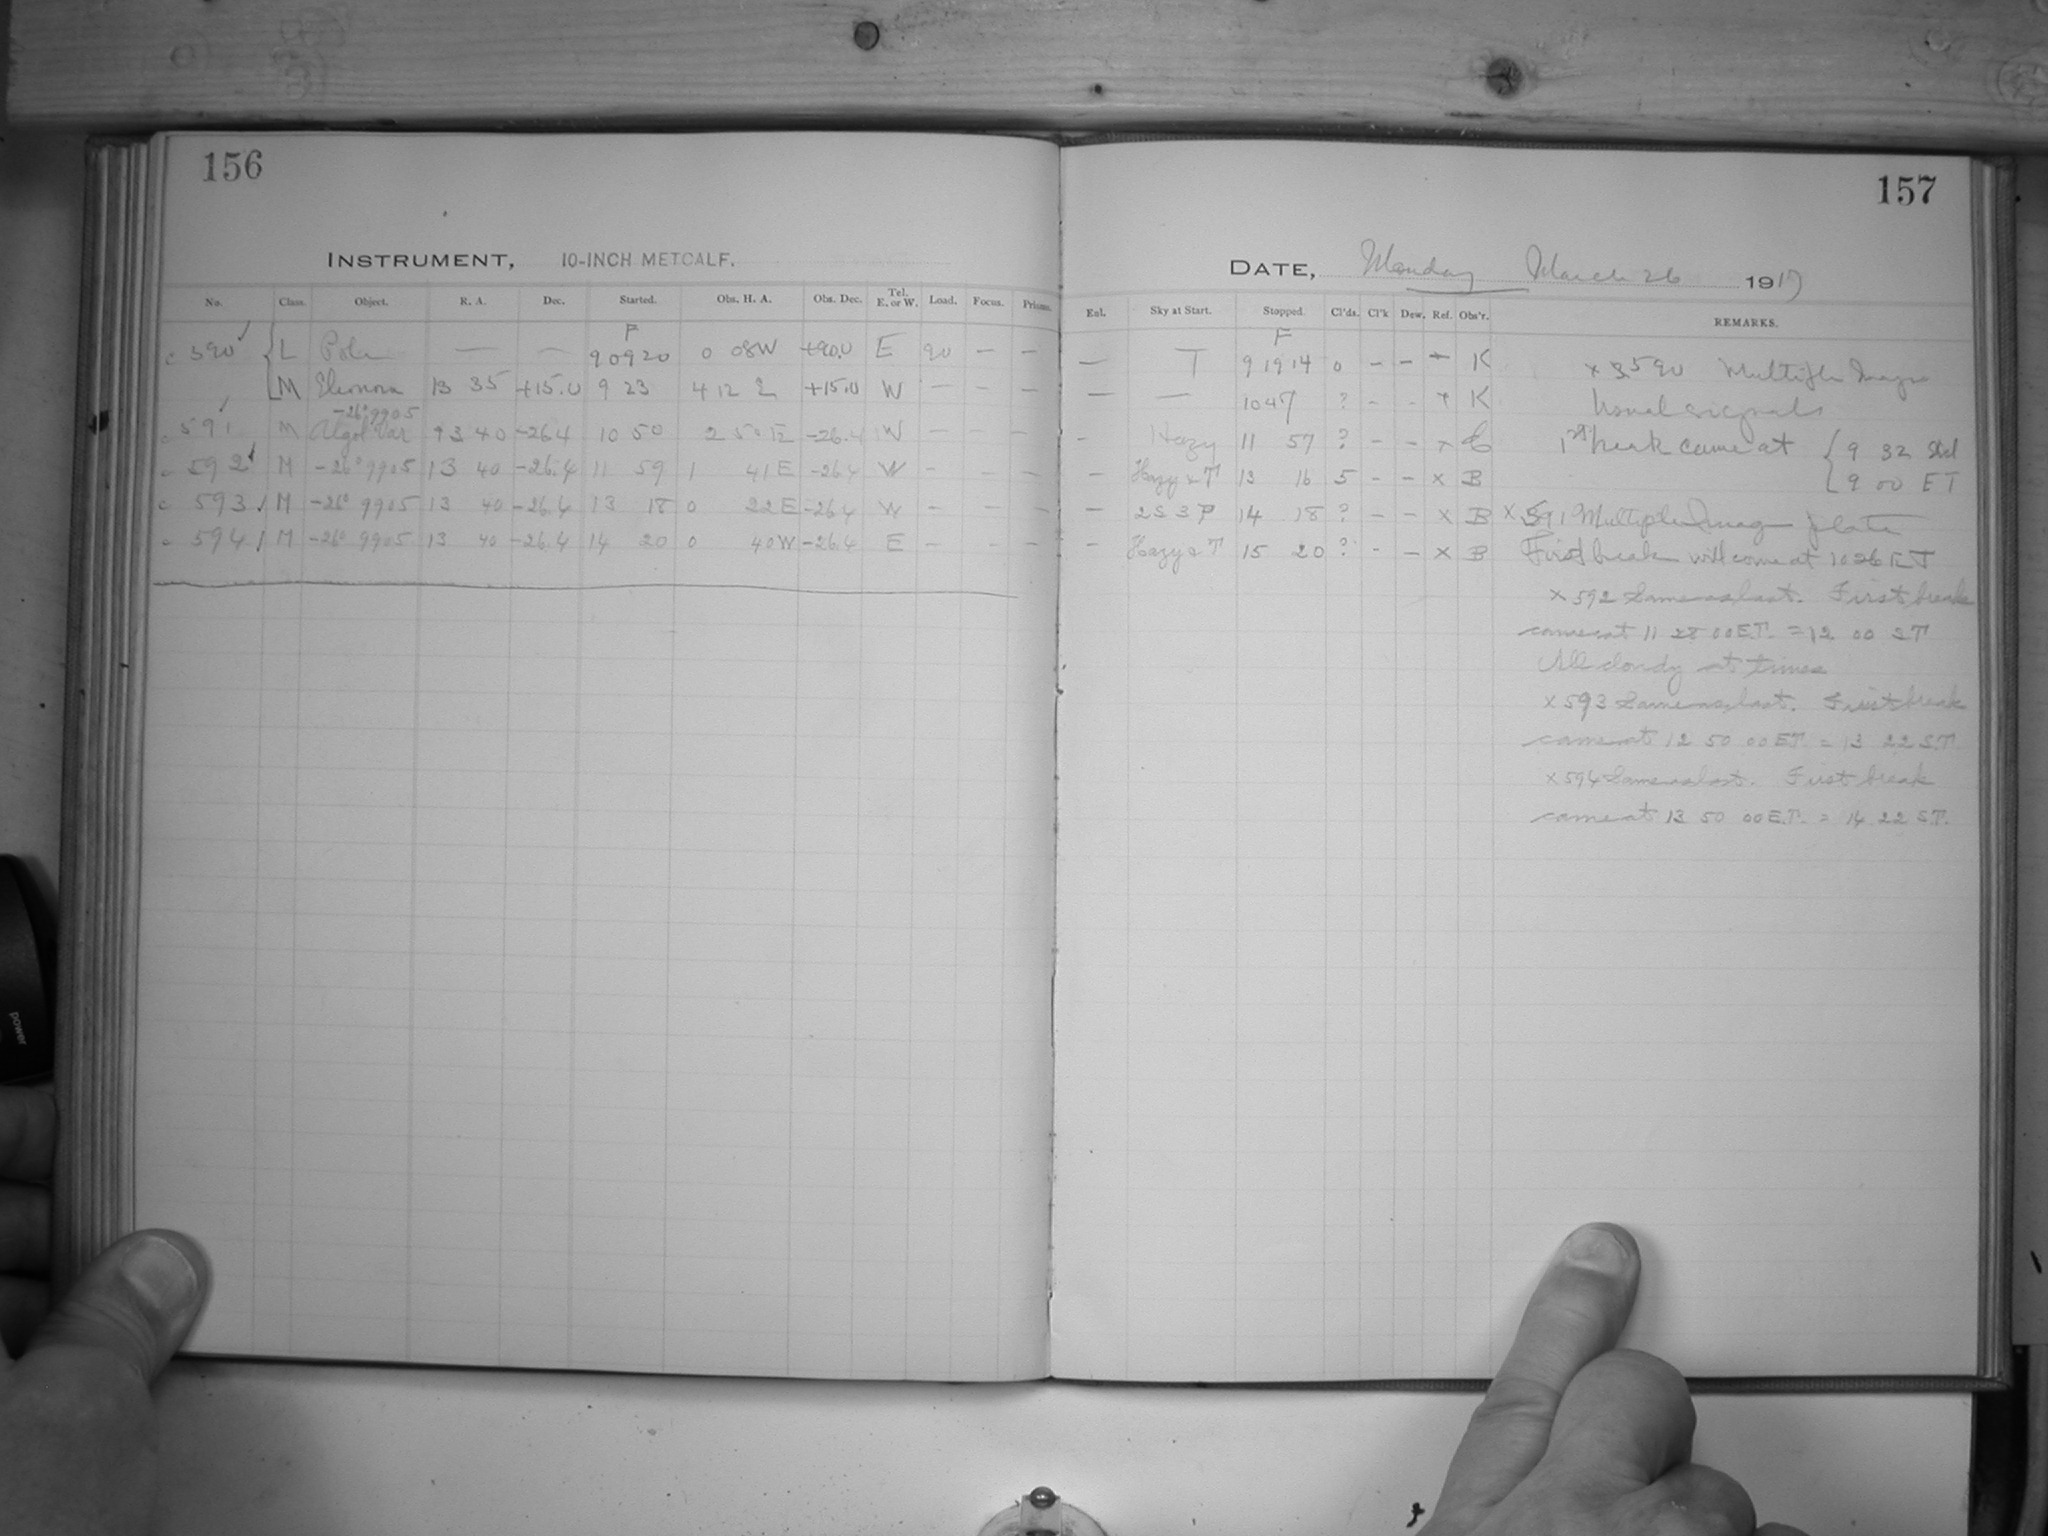 156
INSTRUMENT, 10-INCH METCALF.
No. Class. Object. R. A. Dec. Started. Obs. H. A. Obs. Dec. Tel. E. or W. Load. Focus. Prisms.
F
c 590 L Pole — — 9 09 20 0 08W +90.0 E 90 — —
M Eleonora 13 35 +15.0 9 23 4 12 E +15.0 W — — —
-26° 9905
591 M Algol Var 13 40 -26.4 10 50 2 50 E -26.4 W — — —
c 592 M -26° 9905 13 40 -26.4 11 59 1 41 E -26.4 W — — —
c 593 M -26° 9905 13 40 -26.4 13 18 0 22E -26.4 W — — —
c 594 M -26° 9905 13 40 -26.4 14 20 0 40W -26.4 E — — —
157
DATE, Monday March 26 1917
Enl. Sky at Start. Stopped. Cl'ds. Cl'k Dew. Ref. Obs'r. REMARKS.
F
— T 9 19 14 0 — — K
— — 10 47 ? - - K
- Hazy 11 57 ? - - x
— Hazy & T 13 16 5 - - x B
— 2S 3P 14 18 ? - - x B
— Hazy & T 15 20 ? - - x B
x 590 Multiple Image
Usual signals
1st break came at { 9 32 Std
9 00 ET
x 591 Multiple Image plate
First break will come at 10 26 ET
x 592 Same as last. First break
came at 11 28 00 E.T. = 12 00 ST
All cloudy at times
x 593 Same as last. First break
came at 12 50 00 E.T. = 13 22 S.T.
x 594 Same as last. First break
came at 13 50 00 E.T. = 14 22 S.T.
power